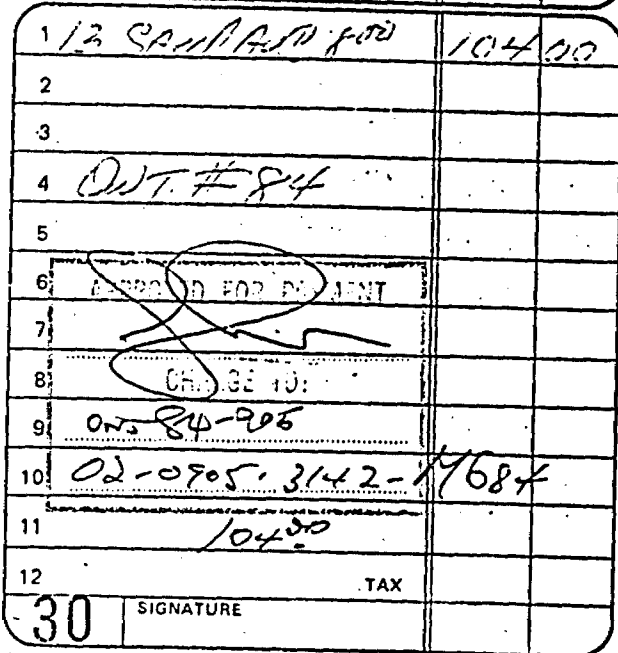 1 13 @ 8.00 104 00
2
3
4 ONT. # 84
5
6 APPROVED FOR PAYMENT
7
8 CHARGE TO:
9 ONT 84-905
10 02-0905-3142-M684
11 104.00
12 TAX
30 SIGNATURE